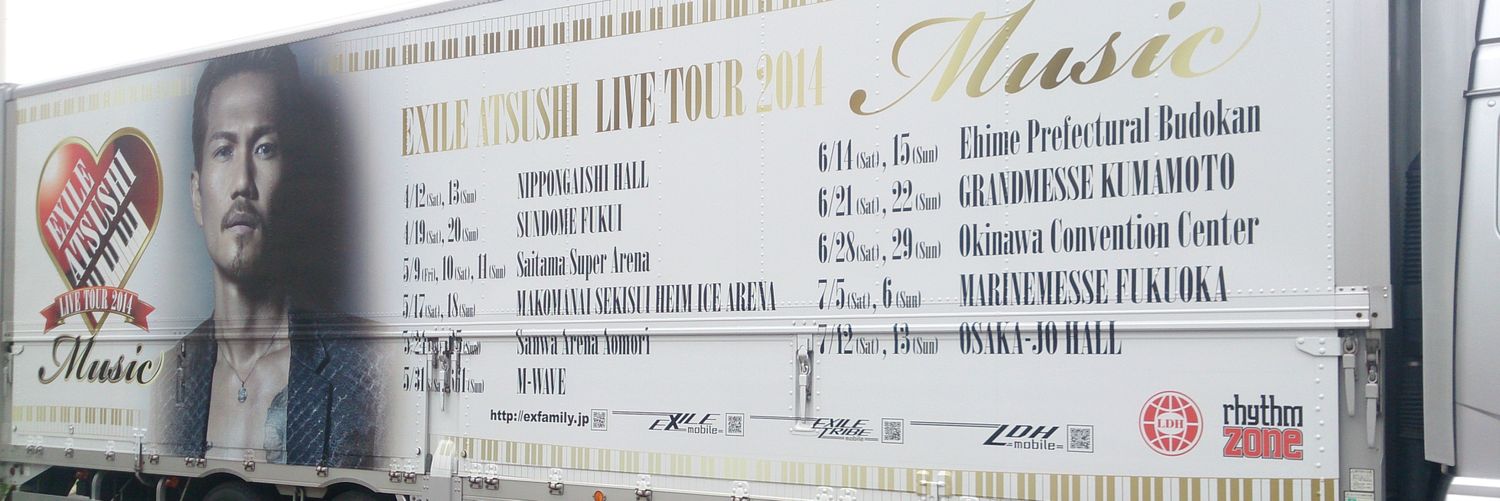 EXILE
ATSUSHI
LIVE TOUR 2014
Music
EXILE ATSUSHI LIVE TOUR 2014 Music
4/12(Sat), 13(Sun) NIPPONGAISHI HALL
4/19(Sat), 20(Sun) SUNDOME FUKUI
5/9(Fri), 10(Sat), 11(Sun) Saitama Super Arena
5/17(Sat), 18(Sun) MAKOMANAI SEKISUI HEIM ICE ARENA
5/24 (Sun) Sanwa Arena Aomori
5/31 6/1(Sun) M-WAVE
6/14(Sat), 15(Sun) Ehime Prefectural Budokan
6/21(Sat), 22(Sun) GRANDMESSE KUMAMOTO
6/28(Sat), 29(Sun) Okinawa Convention Center
7/5(Sat), 6(Sun) MARINEMESSE FUKUOKA
7/12(Sat), 13(Sun) OSAKA-JO HALL
http://exfamily.jp
EXILE
mobile
EXILE
TRIBE
mobile
LDH
mobile
LDH
rhythm
zone